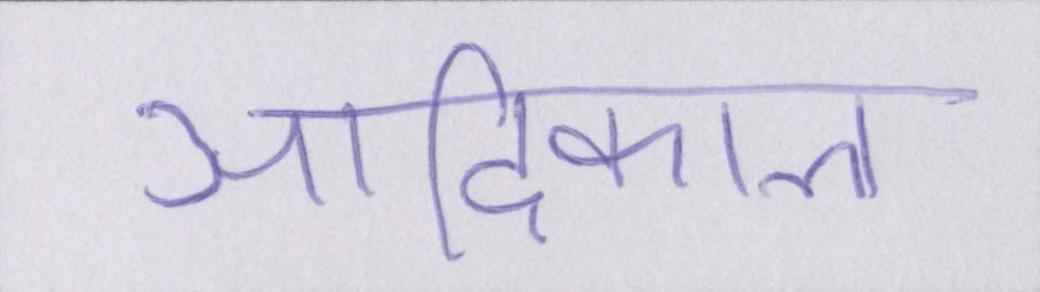 आदिकाल